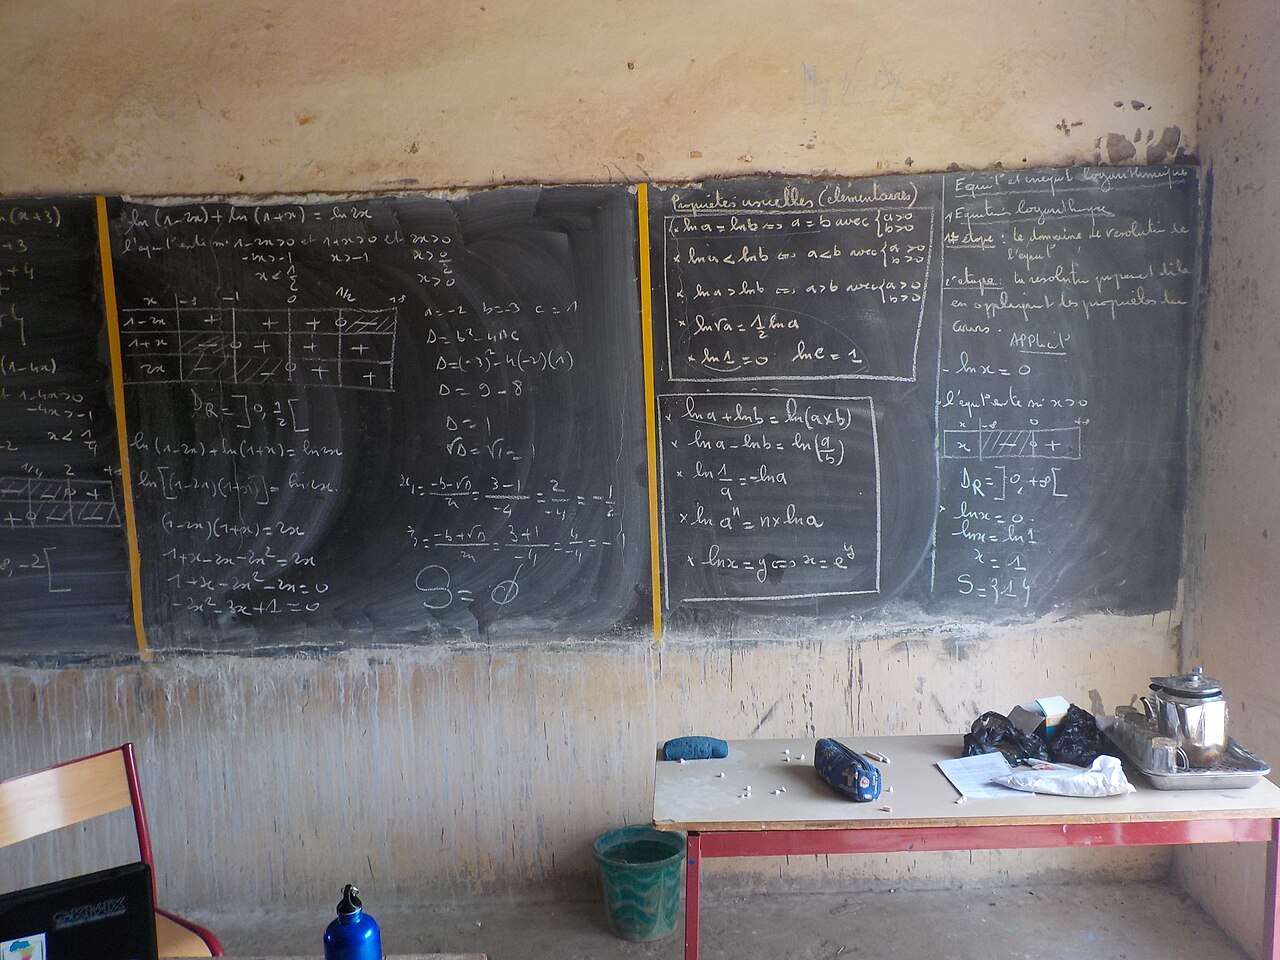 (x+3)
+3
+4
(1-4x)
1-4x>0
-4x>-1
x < 1/4
-2
1/4 2 +∞
+
+ 0 +
∞, -2[
ln(1-2x) + ln(1+x) = ln2x
l'équt° existe ssi 1-2x>0 et 1+x>0 et 2x>0
-2x>-1 x>-1 x>0/2
x<1/2 x>0
x -∞ -1 0 1/2 +∞
1-2x + + + 0 -
1+x - 0 + + +
2x - - 0 + +
DR = ]0, 1/2[
ln(1-2x)+ln(1+x) = ln2x
ln[(1-2x)(1+x)] = ln2x
(1-2x)(1+x) = 2x
1+x-2x-2x² = 2x
1-x-2x²-2x=0
-2x²-3x+1=0
a=-2 b=-3 c=1
D = b²-4ac
D=(-3)²-4(-2)(1)
D = 9-8
D = 1
√D = √1 = 1
x1 = -b-√D/2a = 3-1/-4 = 2/-4 = -1/2
x2 = -b+√D/2a = 3+1/-4 = 4/-4 = -1
S = ∅
Propriétés usuelles (élémentaires)
* ln a = ln b ⟺ a = b avec {a>0 b>0
* ln a < ln b ⟺ a<b avec {a>0 b>0
* ln a > ln b ⟺ a>b avec {a>0 b>0
* ln√a = 1/2 ln a
* ln 1 = 0 ln e = 1
* ln a + ln b = ln(a×b)
* ln a - ln b = ln(a/b)
* ln 1/a = -ln a
* ln aⁿ = n×ln a
* ln x = y ⟺ x = e^y
Equt° et inequt° logarithmique
1) Equation logarithmique
1ère étape : le domaine de résolution de
l'équt°
2e étape : la résolution proprement dite
en appliquant les propriétés du
cours.
APPlict°
- ln x = 0
l'équt° existe ssi x>0
x -∞ 0 +∞
x +
DR = ]0, +∞[
ln x = 0
ln x = ln 1
x = 1
S = {1}